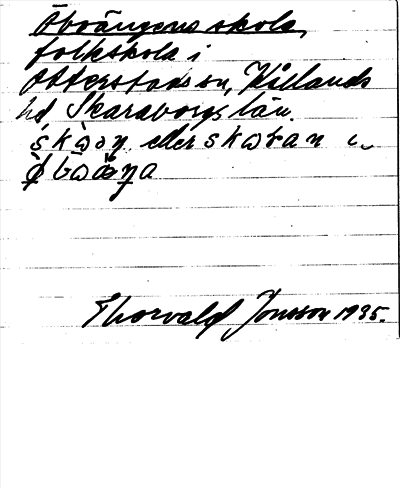 Öboängens skola,
folkskola i
Otterstads sn, Kållands
hd Skaraborgs län.
eller
Thorvald Jonsson 1935.